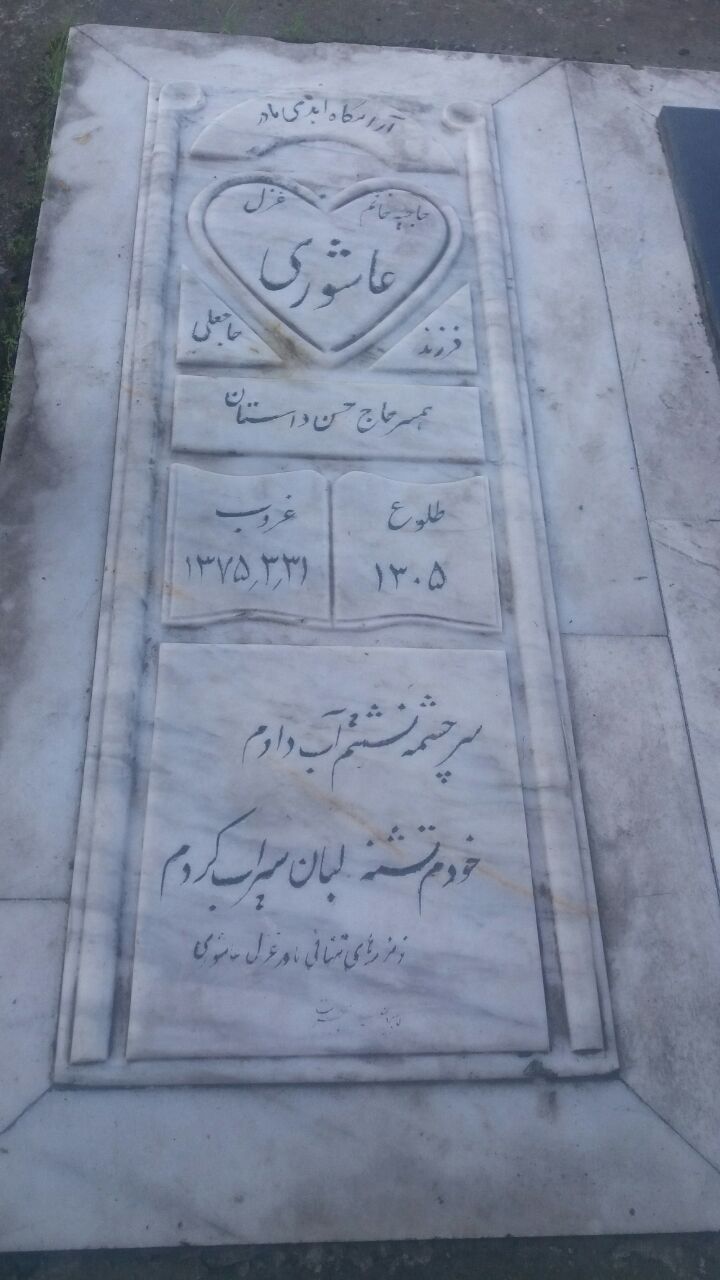 آرامگاه ابدی مادر
حاجیه خانم غزل
عاشوری
فرزند حاجعلی
همسر حاج حسن داستان
طلوع
۱۳۰۵
غروب
۱۳۷۵٫۳٫۳۱
سرچشمه نشستم آب دادم
خودم تشنه لبان سیراب کردم
تنهائی مادر غزل عاشوری